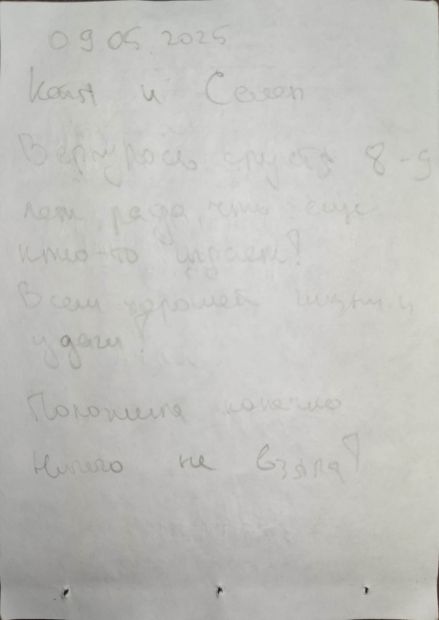 09 05 2025
Катя и Семён
Вернулась спустя 8-9
лет, рада, что еще
кто-то играет!
Всем хорошей жизни и
удачи!
Положила конечно
Ничего не взяла!